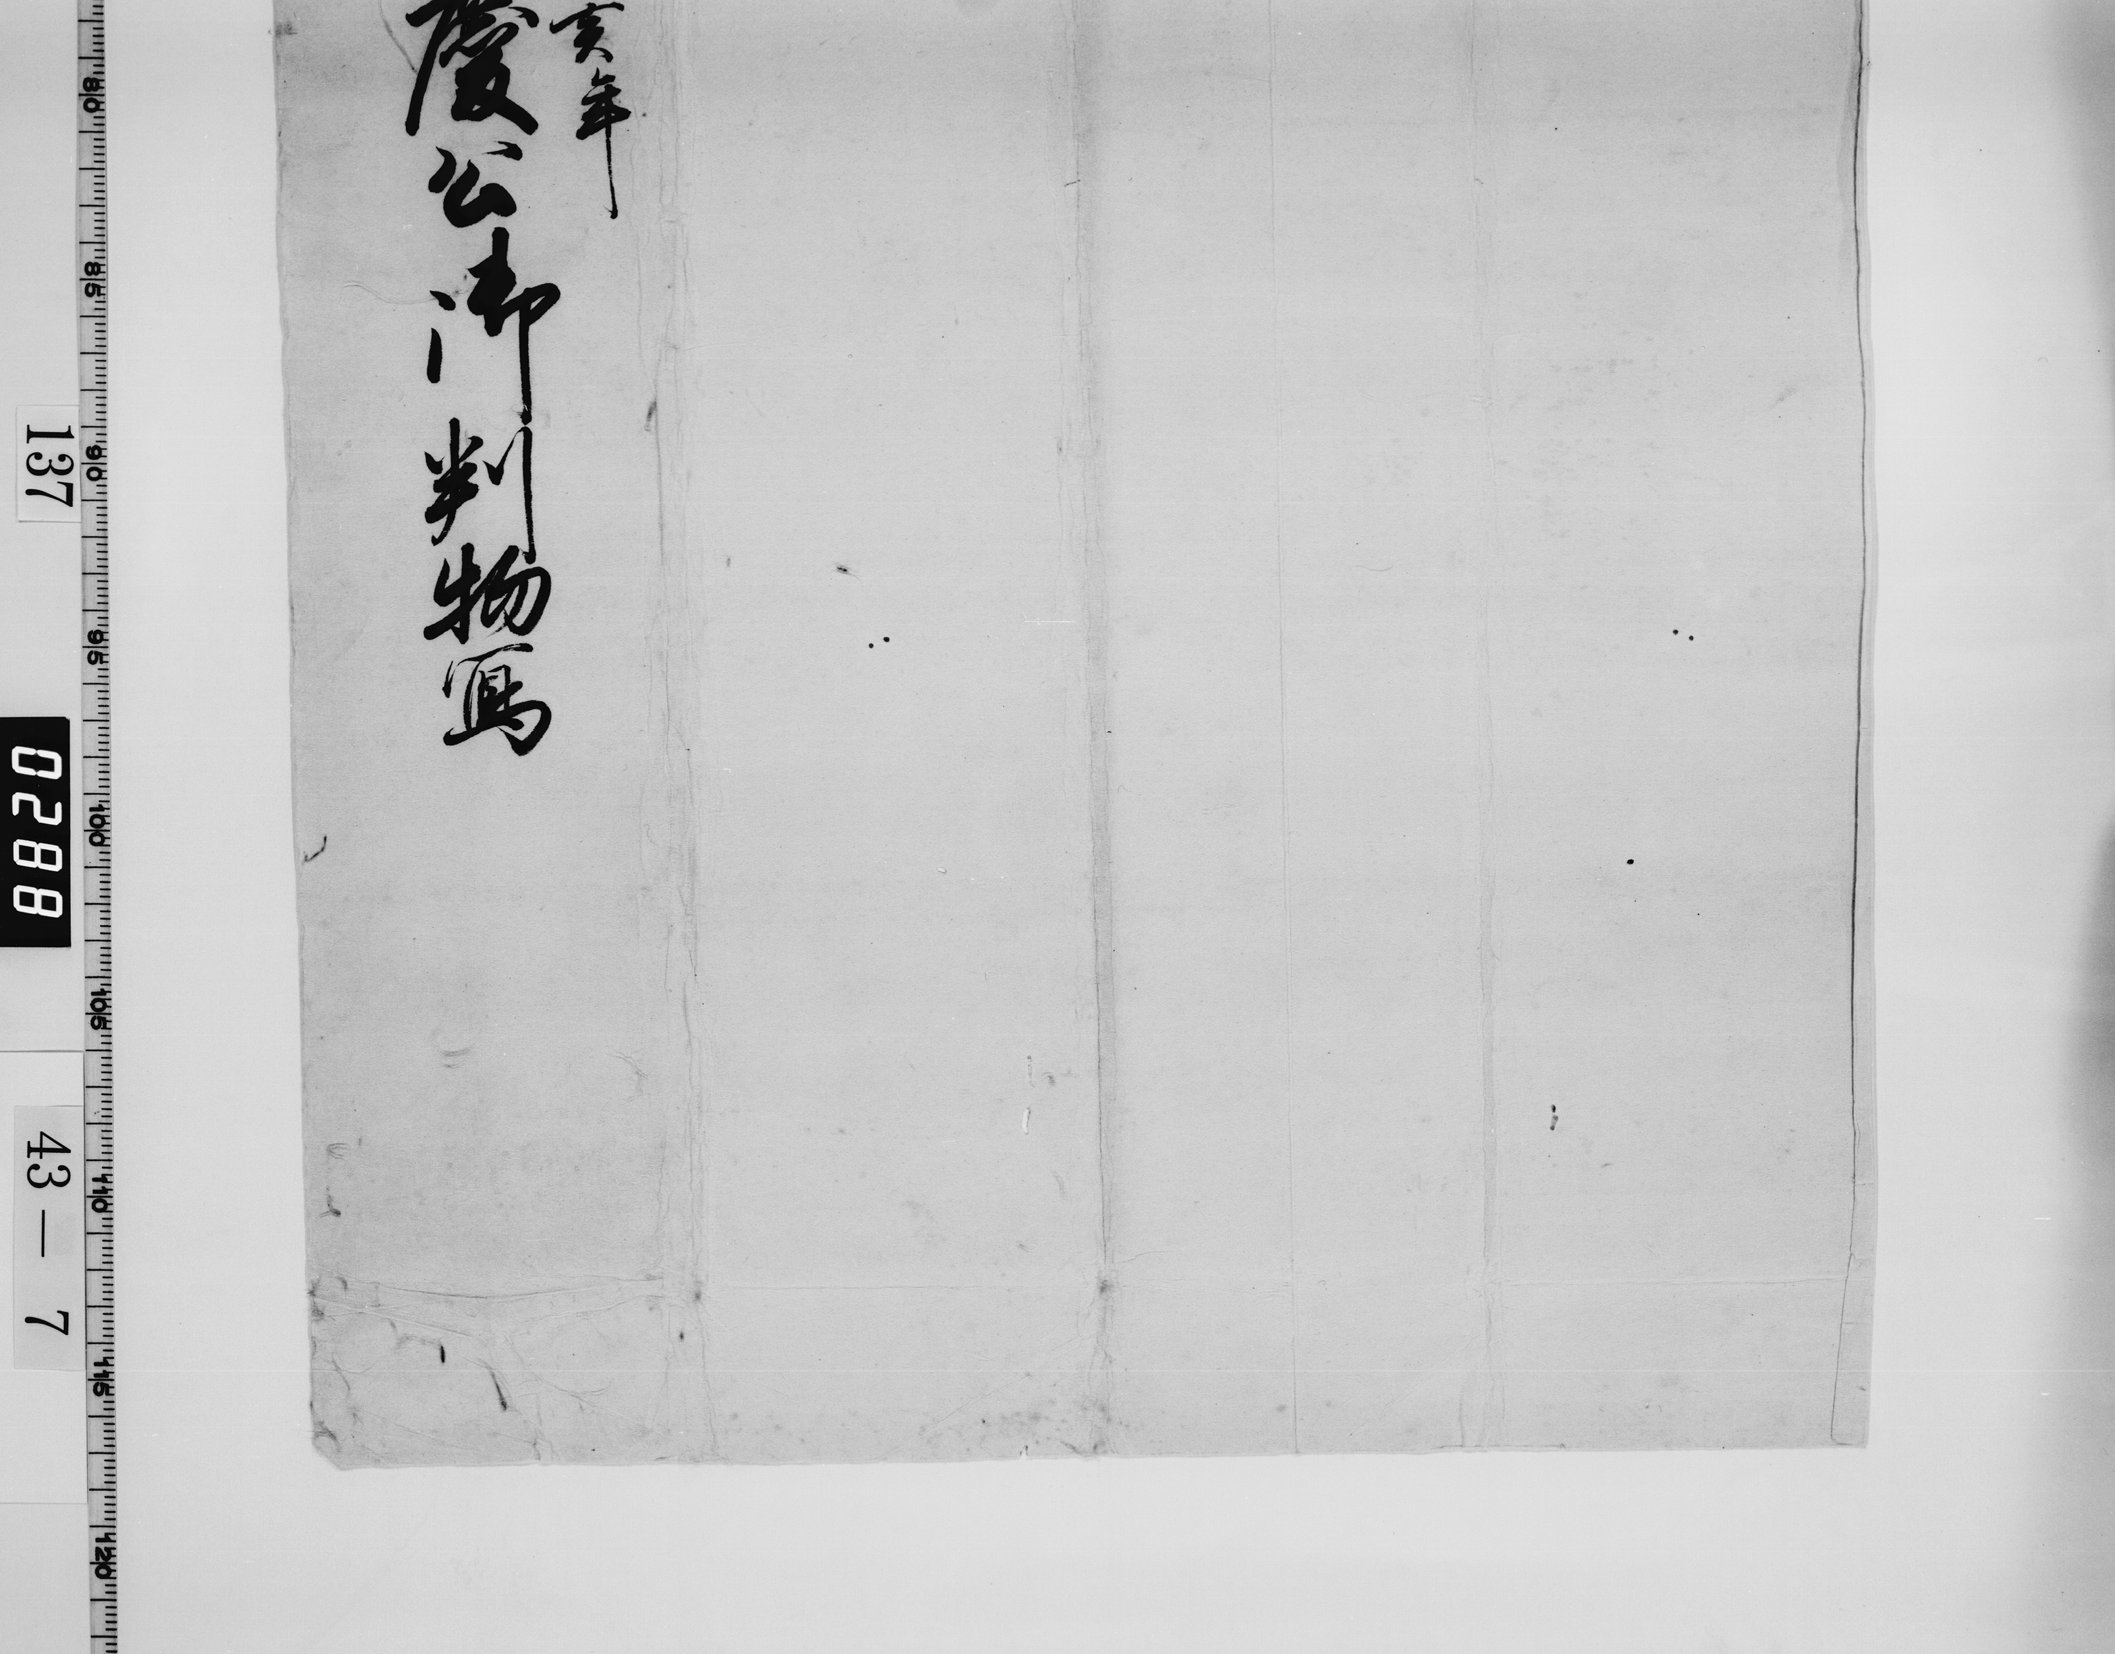 亥年
慶公御判物寫
137
0288
43-7
80
85
90
95
100
105
110
115
120